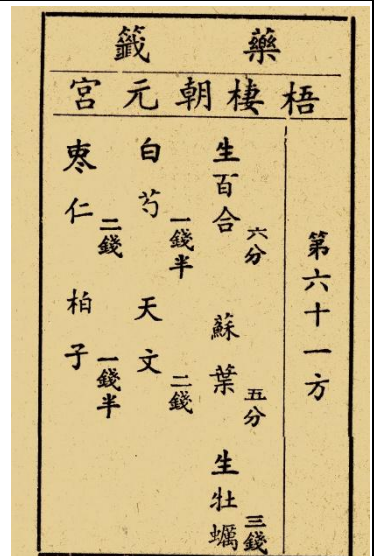 藥籤
梧棲朝元宮
第六十一方
生百合 六分 蘇葉 五分 生牡蠣 三錢
白芍 一錢半 天文 二錢
棗仁 二錢 柏子 一錢半